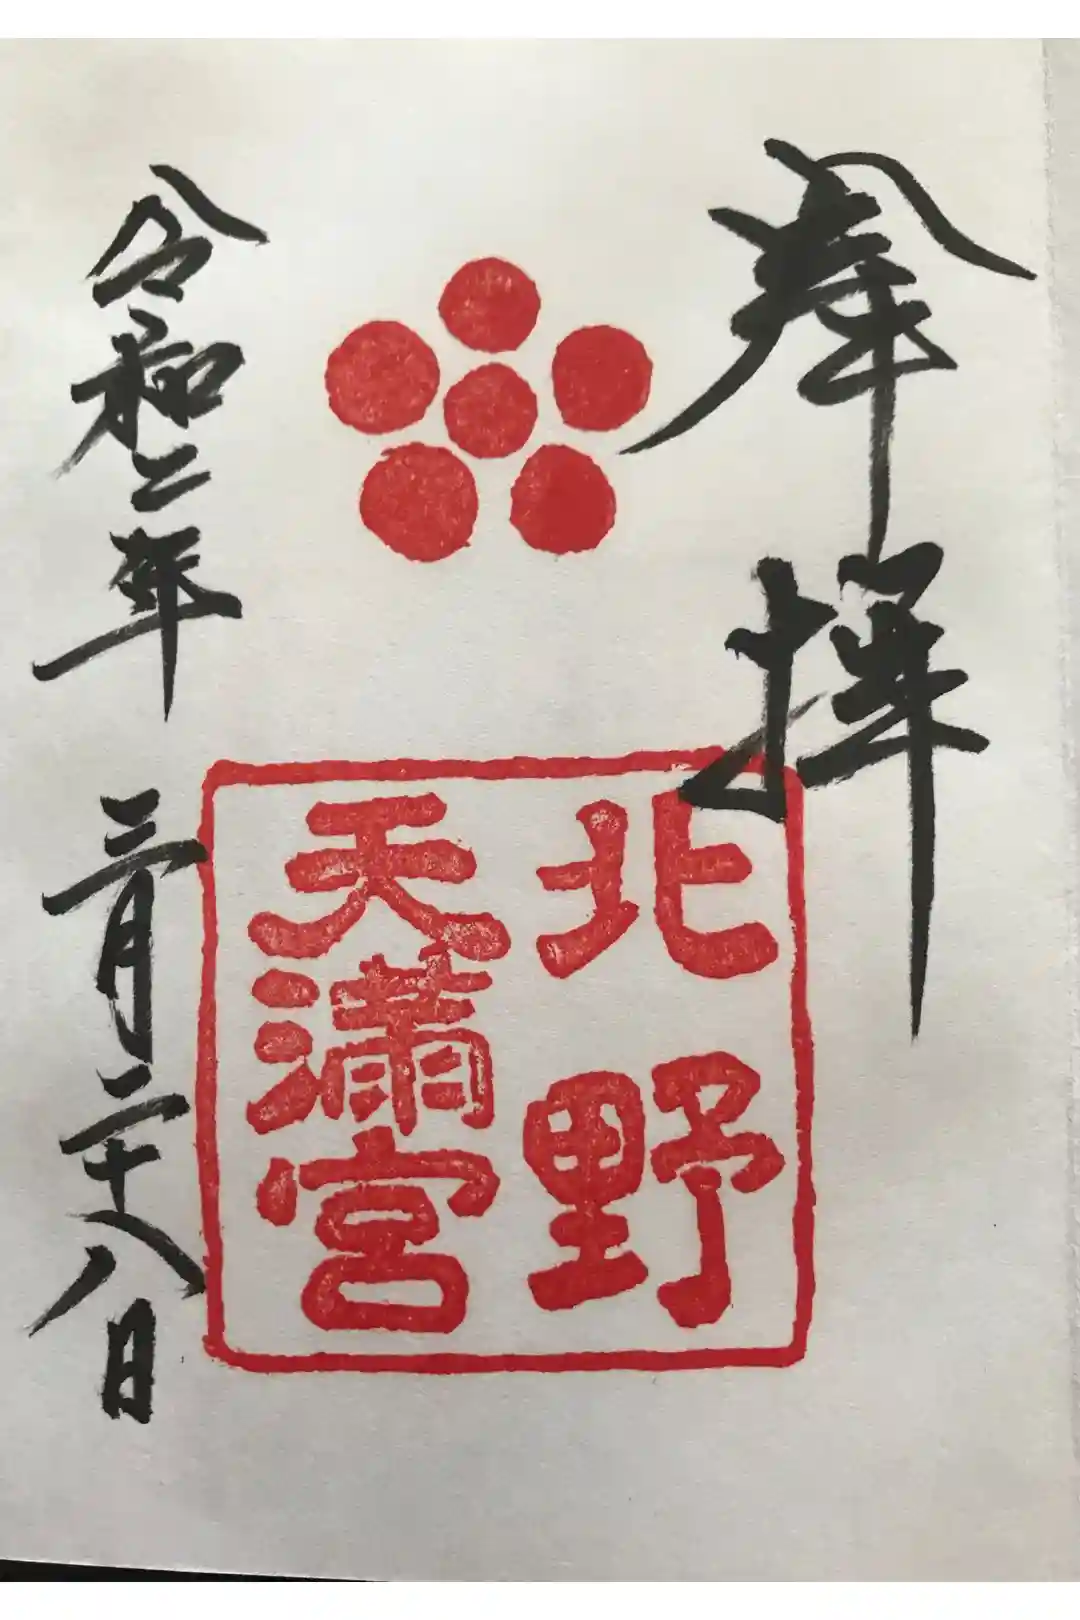 奉拝
北野
天満宮
令和二年 三月二十八日